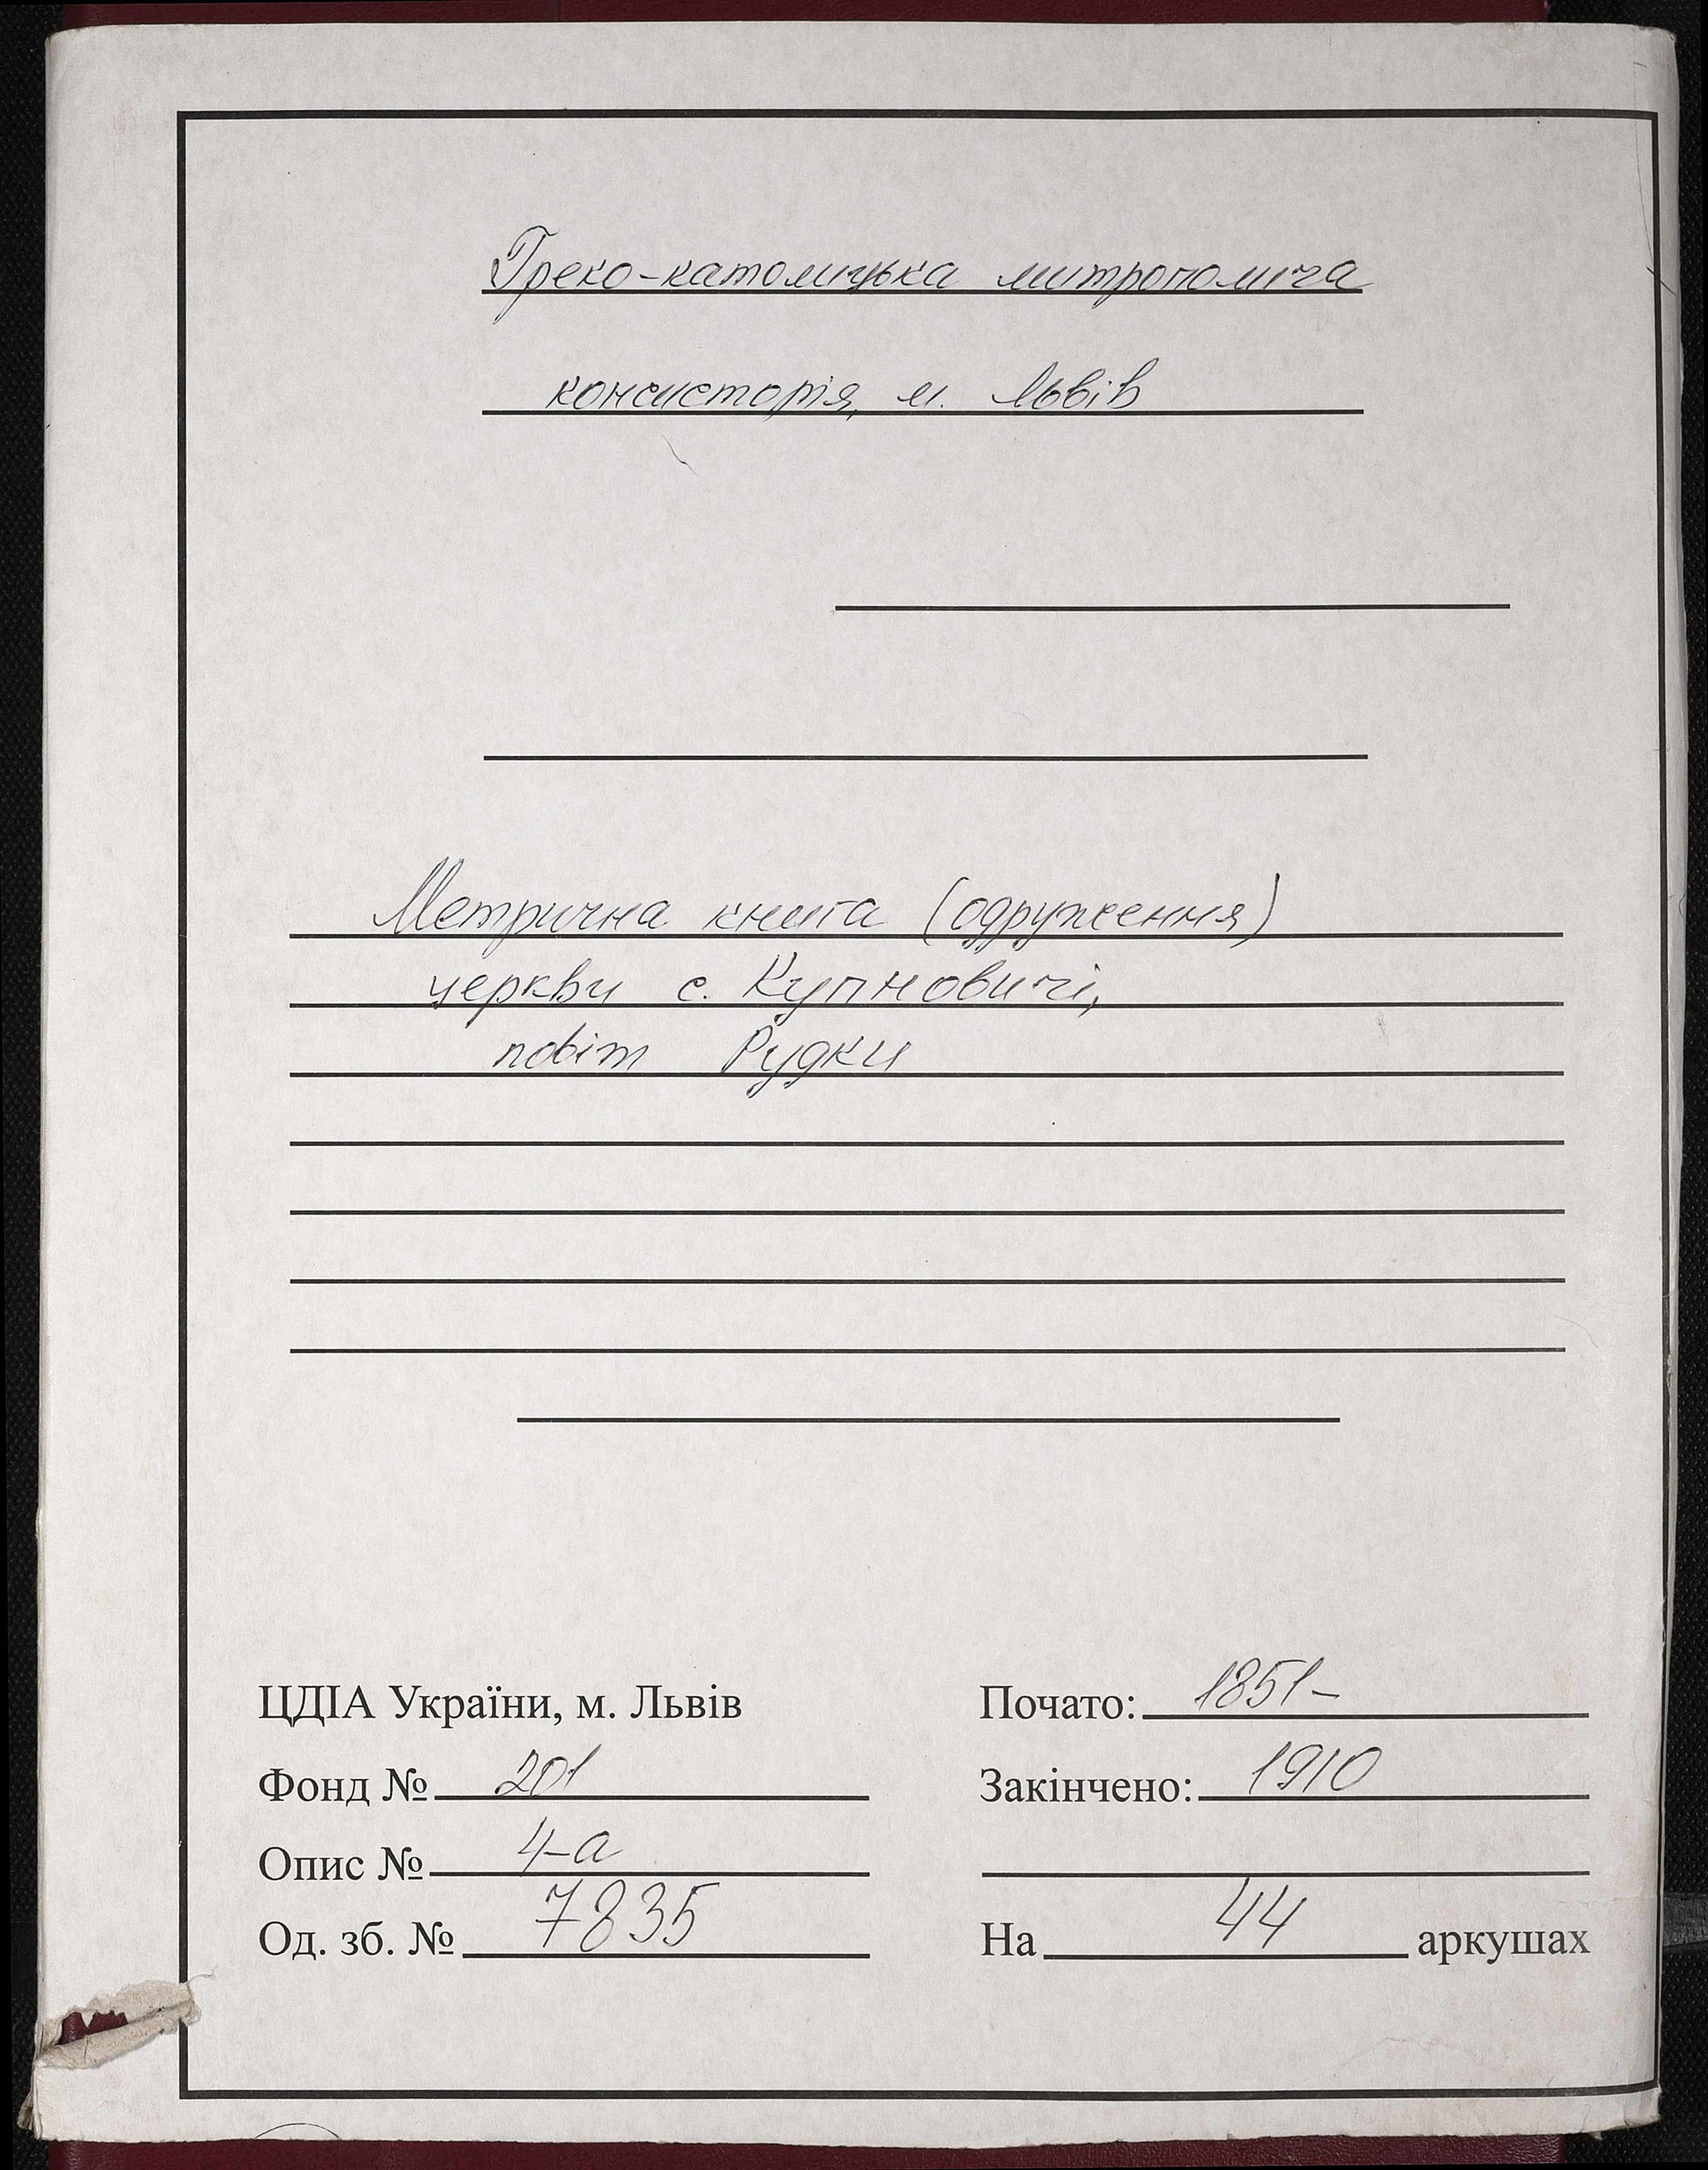 Греко-католицька митрополича
консисторія, м. Львів
Метрична книга (одруження)
церкви с. Купновичі,
повіт Рудки
ЦДІА України, м. Львів
Фонд № 201
Опис № 4-а
Од. зб. № 7835
Почато: 1851-
Закінчено: 1910
На 44 аркушах